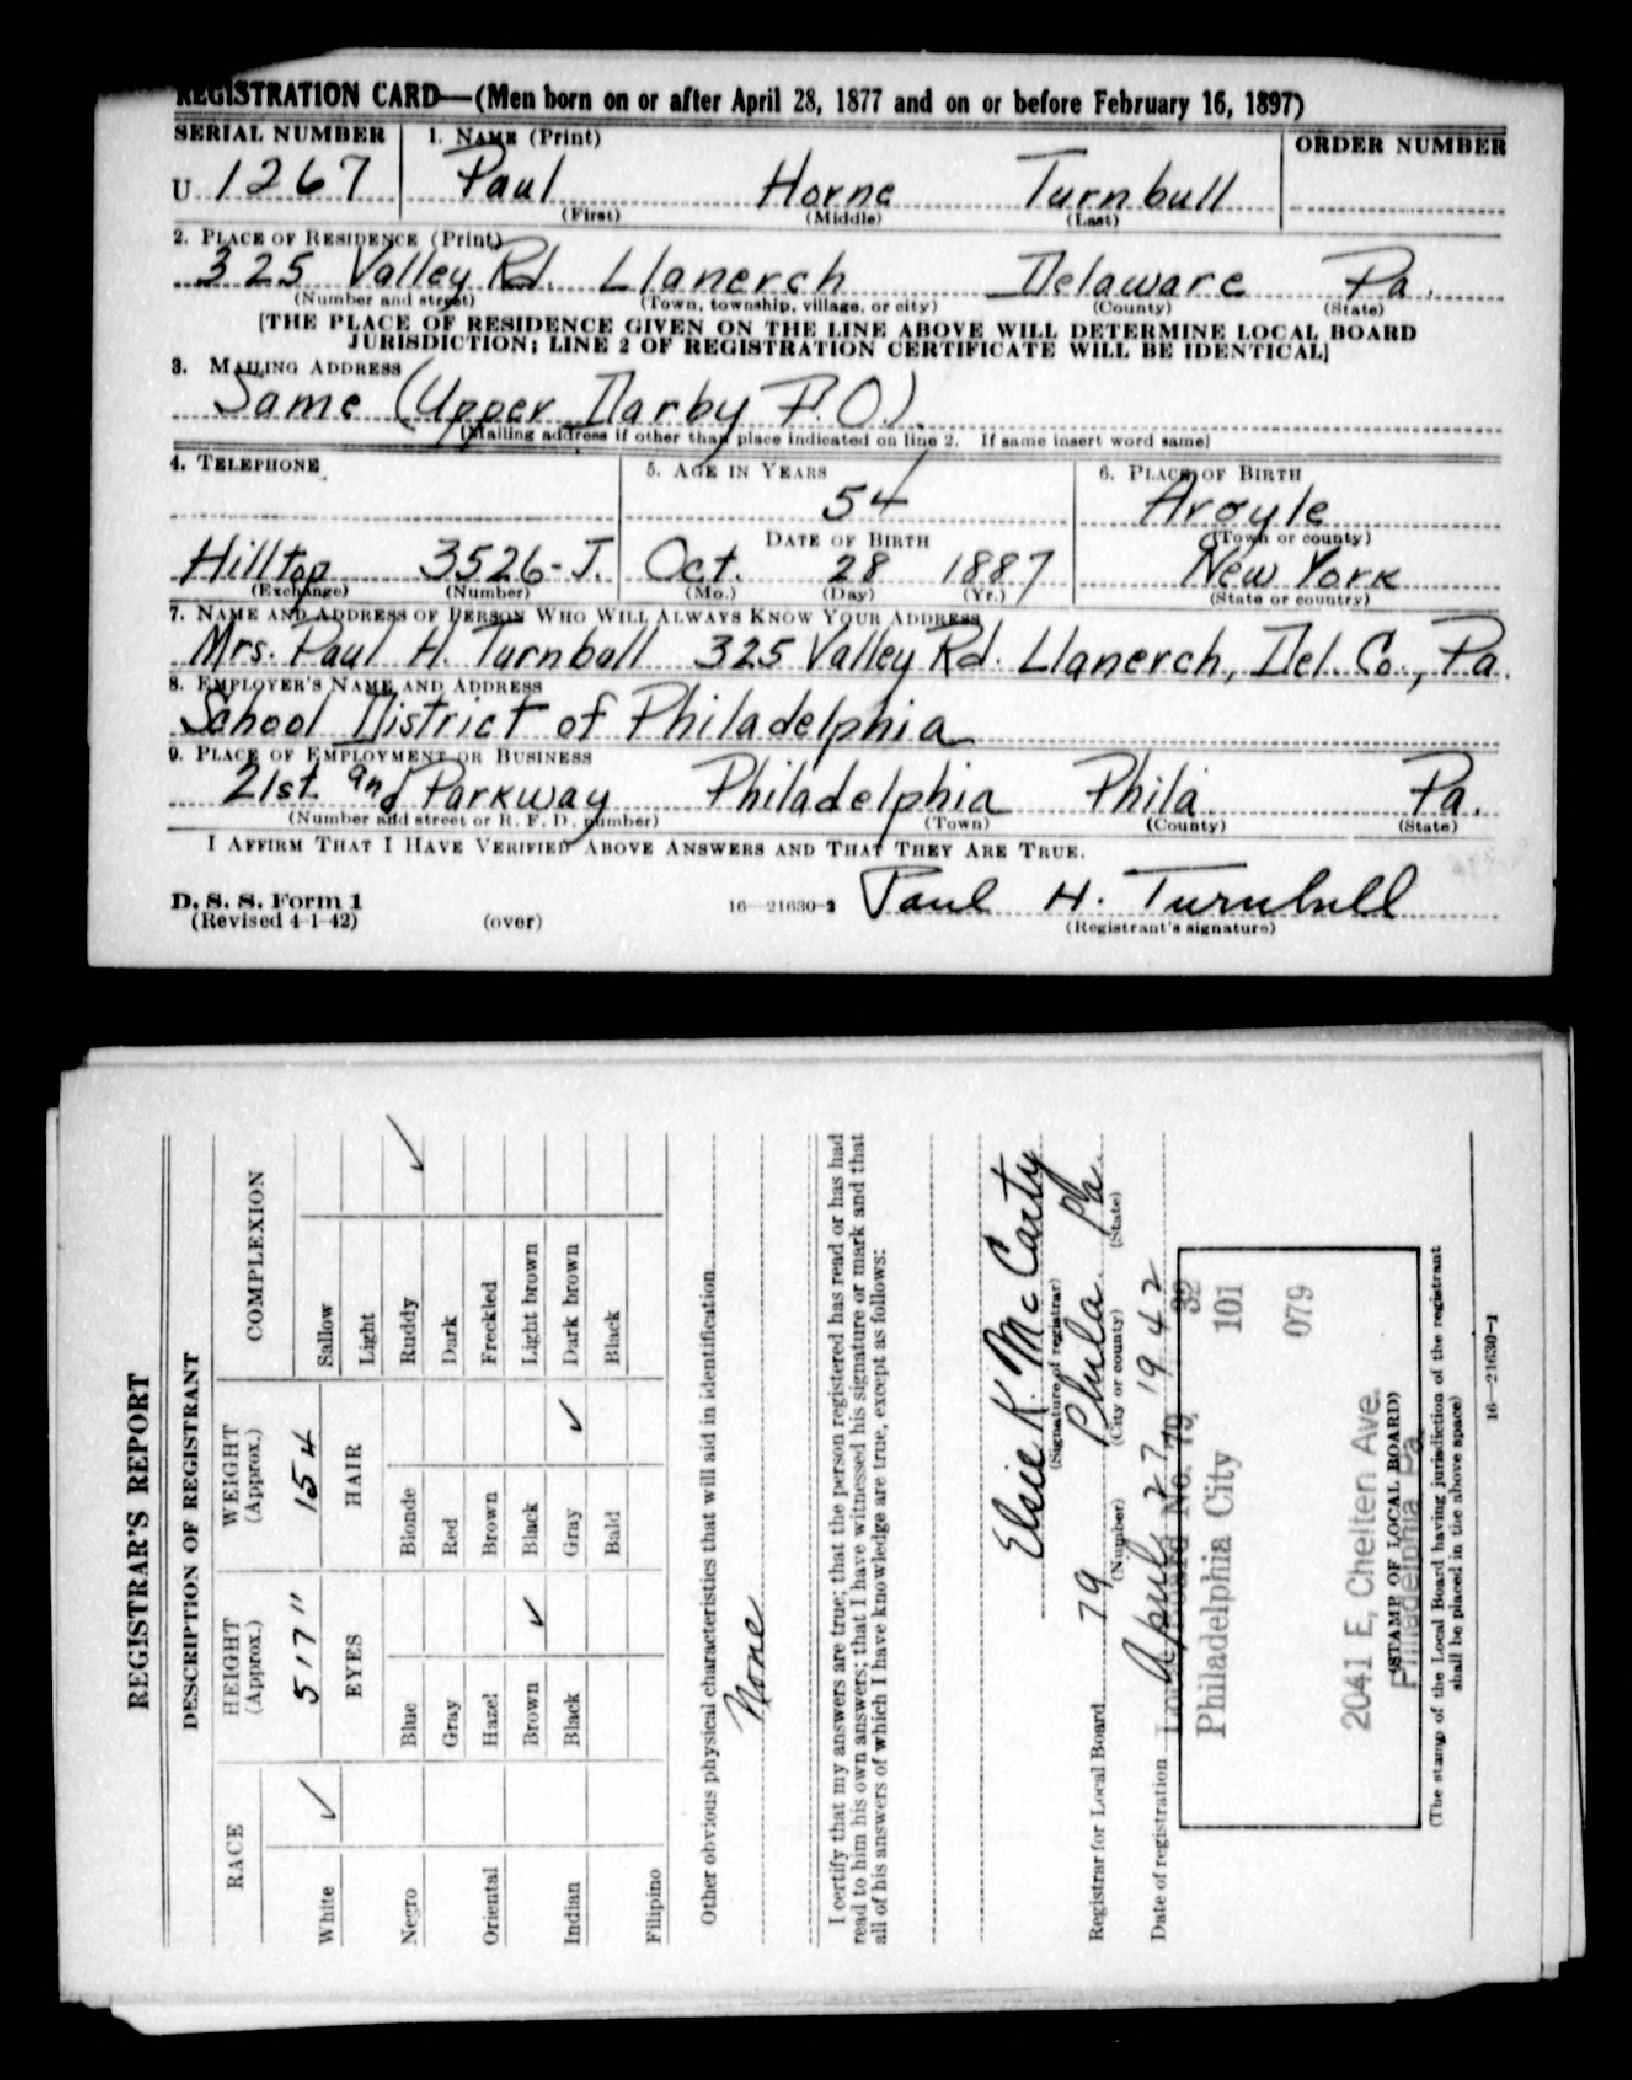 REGISTRATION CARD—(Men born on or after April 28, 1877 and on or before February 16, 1897)
SERIAL NUMBER 1. NAME (Print) ORDER NUMBER
U 1267 Paul Horne Turnbull
(First) (Middle) (Last)
2. PLACE OF RESIDENCE (Print)
325 Valley Rd. Llanerch Delaware Pa.
(Number and street) (Town, township, village, or city) (County) (State)
[THE PLACE OF RESIDENCE GIVEN ON THE LINE ABOVE WILL DETERMINE LOCAL BOARD
JURISDICTION; LINE 2 OF REGISTRATION CERTIFICATE WILL BE IDENTICAL]
3. MAILING ADDRESS
Same (Upper Darby P.O.)
[Mailing address if other than place indicated on line 2. If same insert word same]
4. TELEPHONE 5. AGE IN YEARS 6. PLACE OF BIRTH
54 Argyle
DATE OF BIRTH (Town or county)
Hilltop 3526-J. Oct. 28 1887 New York
(Exchange) (Number) (Mo.) (Day) (Yr.) (State or country)
7. NAME AND ADDRESS OF PERSON WHO WILL ALWAYS KNOW YOUR ADDRESS
Mrs. Paul H. Turnbull 325 Valley Rd. Llanerch, Del. Co., Pa.
8. EMPLOYER'S NAME AND ADDRESS
School District of Philadelphia
9. PLACE OF EMPLOYMENT OR BUSINESS
21st and Parkway Philadelphia Phila Pa.
(Number and street or R. F. D. number) (Town) (County) (State)
I AFFIRM THAT I HAVE VERIFIED ABOVE ANSWERS AND THAT THEY ARE TRUE.
D. S. S. Form 1
(Revised 4-1-42) (over) 16—21630-2 Paul H. Turnbull
(Registrant's signature)
REGISTRAR'S REPORT
DESCRIPTION OF REGISTRANT
RACE HEIGHT (Approx.) WEIGHT (Approx.) COMPLEXION
White ✓ 5'7" 154 Sallow
EYES HAIR Light
Negro Blue Blonde Ruddy ✓
Gray Red Dark
Oriental Hazel Brown Freckled
Brown ✓ Black Light brown
Indian Black Gray ✓ Dark brown
Bald Black
Filipino
Other obvious physical characteristics that will aid in identification
None
I certify that my answers are true; that the person registered has read or has had
read to him his own answers; that I have witnessed his signature or mark and that
all of his answers of which I have knowledge are true, except as follows:
Elsie K. McCarty
(Signature of registrar)
Registrar for Local Board 79 Phila. Pa.
(Number) (City or county) (State)
Date of registration April 27 1942
Local Board No. 79, 32
Philadelphia City 101
079
2041 E. Chelten Ave.
(STAMP OF LOCAL BOARD)
Philadelphia Pa.
(The stamp of the Local Board having jurisdiction of the registrant
shall be placed in the above space)
16—21630-1